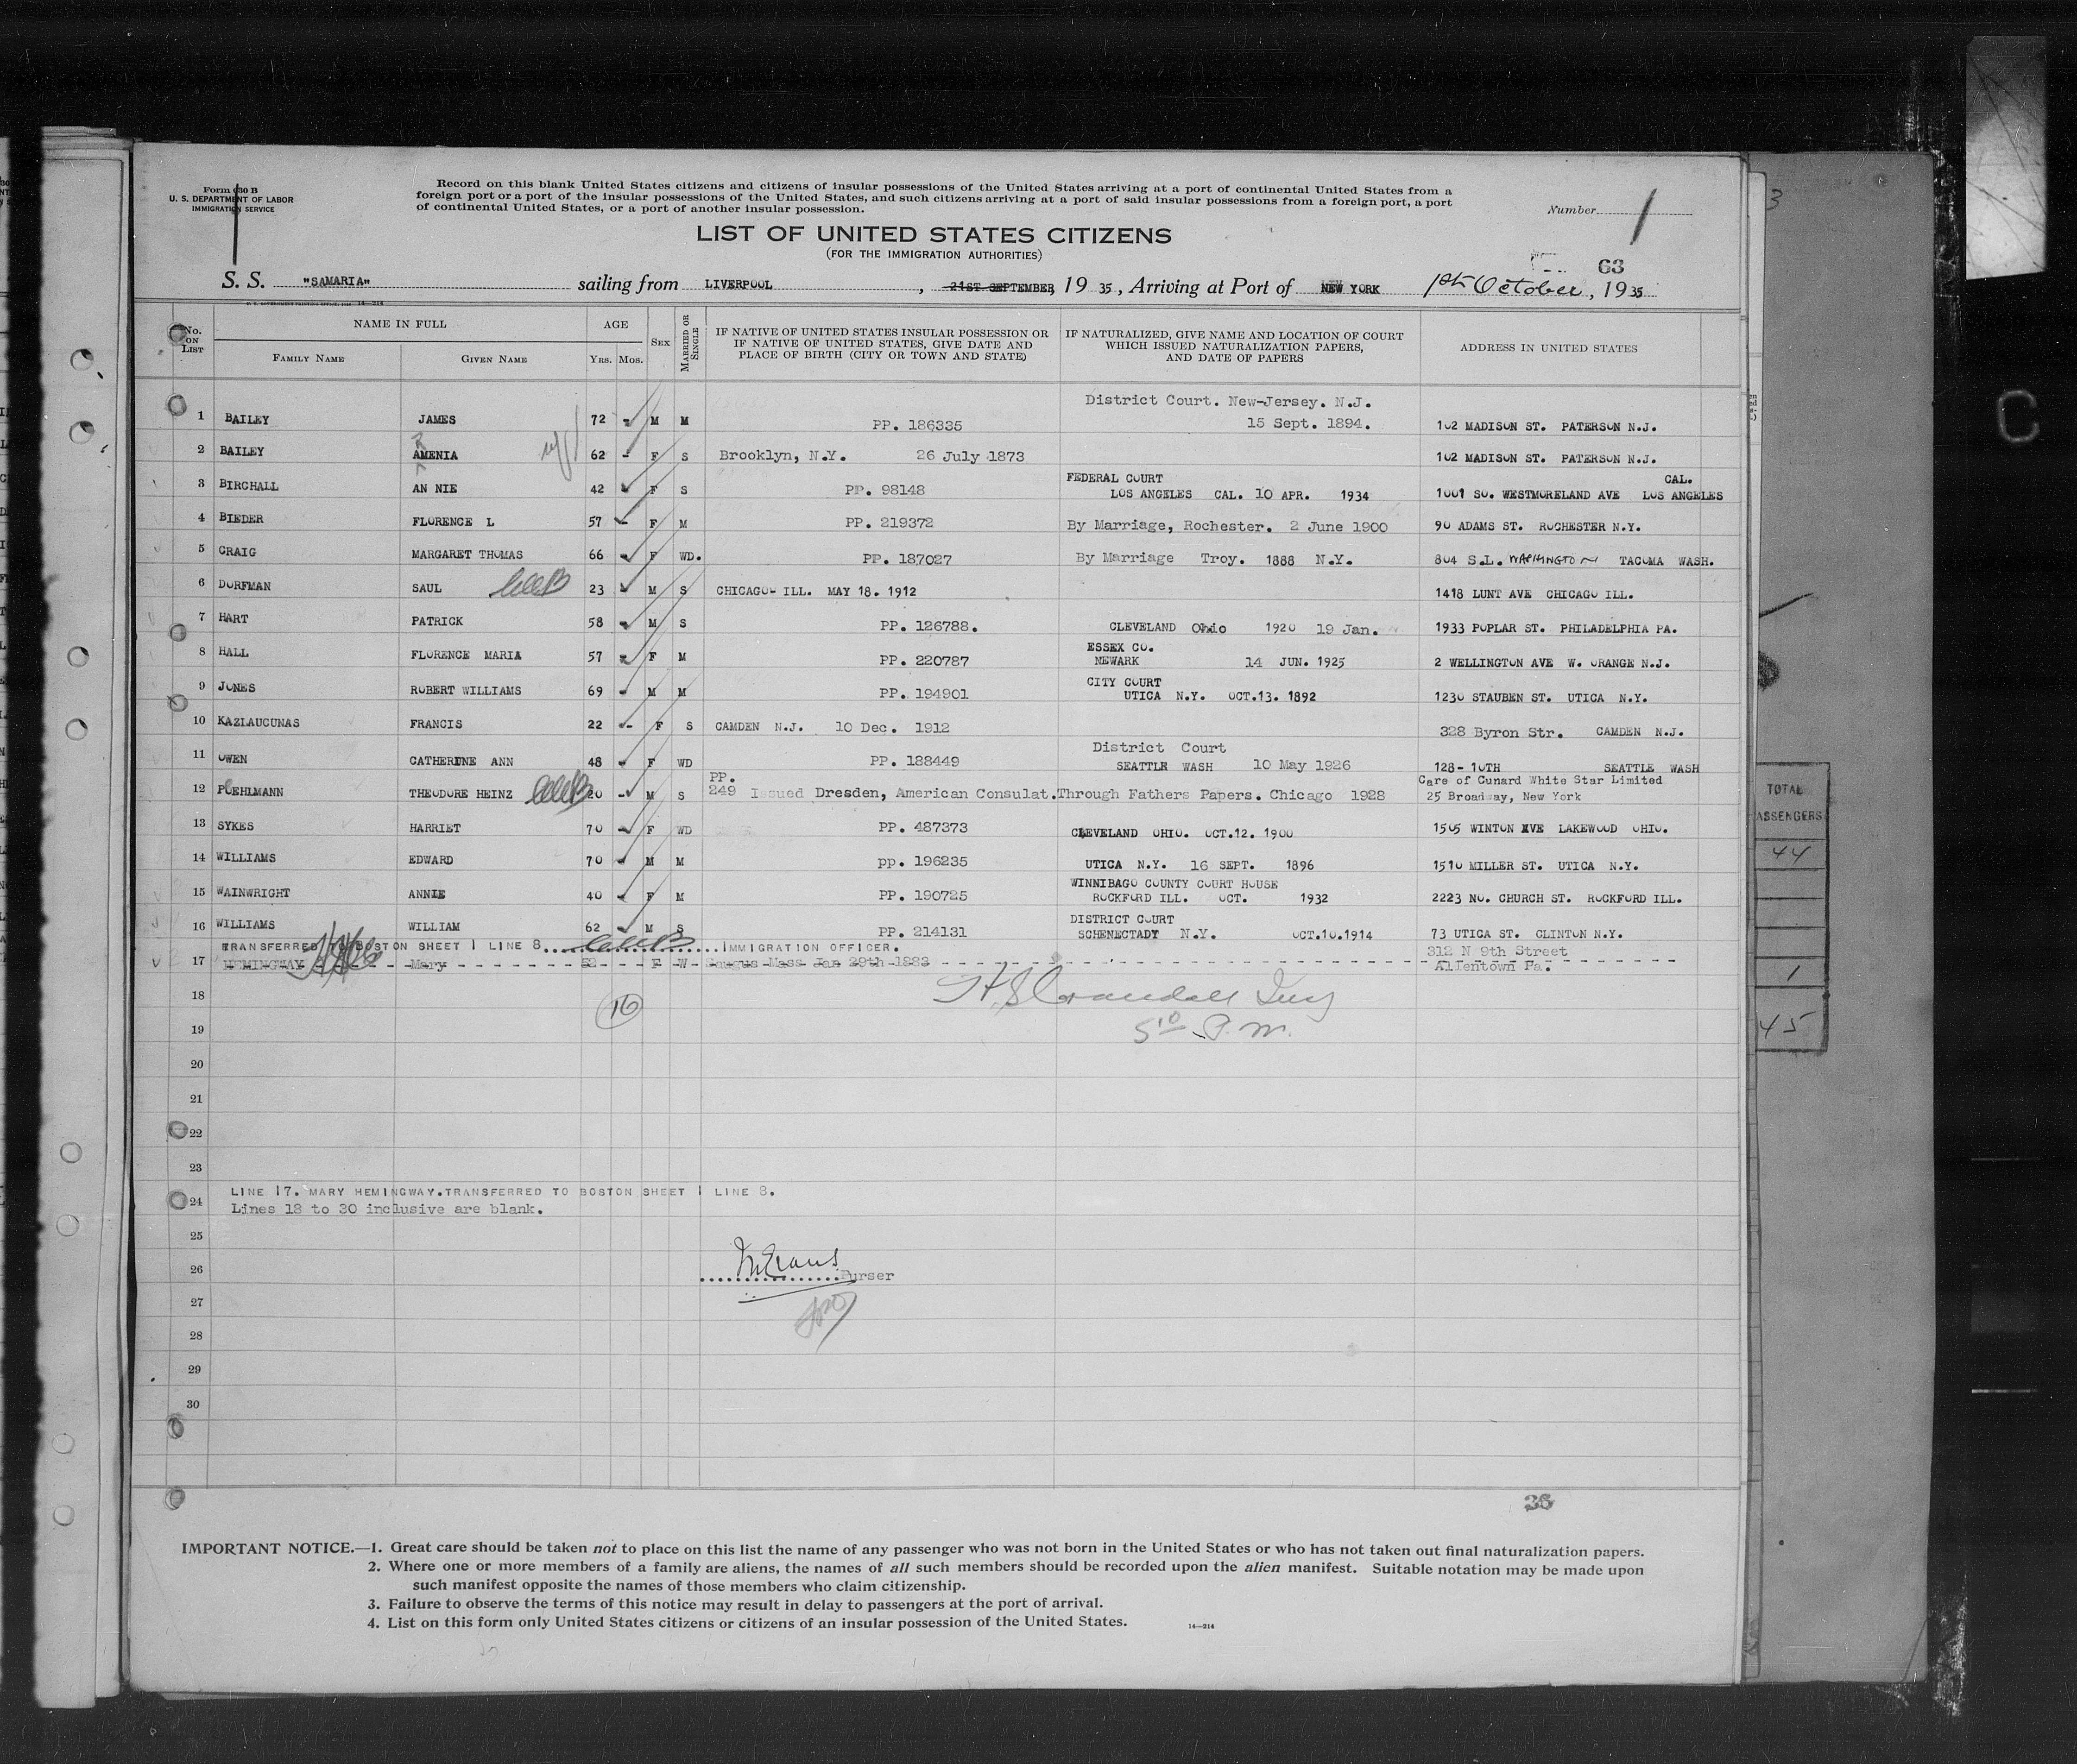 Form 630 B
U. S. DEPARTMENT OF LABOR
IMMIGRATION SERVICE
Record on this blank United States citizens and citizens of insular possessions of the United States arriving at a port of continental United States from a
foreign port or a port of the insular possessions of the United States, and such citizens arriving at a port of said insular possessions from a foreign port, a port
of continental United States, or a port of another insular possession.
Number 1
LIST OF UNITED STATES CITIZENS
(FOR THE IMMIGRATION AUTHORITIES)
63
S. S. "SAMARIA" sailing from LIVERPOOL, 21ST. SEPTEMBER, 19 35, Arriving at Port of NEW YORK 1st October, 19 35
No. ON LIST
NAME IN FULL
FAMILY NAME GIVEN NAME
AGE
YRS. MOS.
SEX
MARRIED OR SINGLE
IF NATIVE OF UNITED STATES INSULAR POSSESSION OR
IF NATIVE OF UNITED STATES, GIVE DATE AND
PLACE OF BIRTH (CITY OR TOWN AND STATE)
IF NATURALIZED, GIVE NAME AND LOCATION OF COURT
WHICH ISSUED NATURALIZATION PAPERS,
AND DATE OF PAPERS
ADDRESS IN UNITED STATES
District Court. New-Jersey. N.J.
1 BAILEY JAMES 72 - M M PP. 186335 15 Sept. 1894. 102 MADISON ST. PATERSON N.J.
2 BAILEY AMENIA 62 - F S Brooklyn, N.Y. 26 July 1873 102 MADISON ST. PATERSON N.J.
FEDERAL COURT CAL.
3 BIRCHALL AN NIE 42 - F S PP. 98148 LOS ANGELES CAL. 10 APR. 1934 1001 SO. WESTMORELAND AVE LOS ANGELES
4 BIEDER FLORENCE L 57 - F M PP. 219372 By Marriage, Rochester. 2 June 1900 90 ADAMS ST. ROCHESTER N.Y.
5 CRAIG MARGARET THOMAS 66 - F WD. PP. 187027 By Marriage Troy. 1888 N.Y. 804 S.L. WASHINGTON TACOMA WASH.
6 DORFMAN SAUL 23 - M S CHICAGO- ILL. MAY 18. 1912 1418 LUNT AVE CHICAGO ILL.
7 HART PATRICK 58 - M S PP. 126788. CLEVELAND Ohio 1920 19 Jan. 1933 POPLAR ST. PHILADELPHIA PA.
ESSEX CO.
8 HALL FLORENCE MARIA 57 - F M PP. 220787 NEWARK 14 JUN. 1925 2 WELLINGTON AVE W. ORANGE N.J.
CITY COURT
9 JONES ROBERT WILLIAMS 69 - M M PP. 194901 UTICA N.Y. OCT.13. 1892 1230 STAUBEN ST. UTICA N.Y.
10 KAZLAUCUNAS FRANCIS 22 - F S CAMDEN N.J. 10 Dec. 1912 328 Byron Str. CAMDEN N.J.
District Court
11 OWEN CATHERINE ANN 48 - F WD PP. 188449 SEATTLE WASH 10 May 1926 128- 10TH SEATTLE WASH
PP. Care of Cunard White Star Limited
12 POEHLMANN THEODORE HEINZ 20 - M S 249 Issued Dresden, American Consulat. Through Fathers Papers. Chicago 1928 25 Broadway, New York
13 SYKES HARRIET 70 - F WD PP. 487373 CLEVELAND OHIO. OCT.12. 1900 1505 WINTON AVE LAKEWOOD OHIO.
14 WILLIAMS EDWARD 70 - M M PP. 196235 UTICA N.Y. 16 SEPT. 1896 1510 MILLER ST. UTICA N.Y.
WINNIBAGO COUNTY COURT HOUSE
15 WAINWRIGHT ANNIE 40 - F M PP. 190725 ROCKFORD ILL. OCT. 1932 2223 NO. CHURCH ST. ROCKFORD ILL.
DISTRICT COURT
16 WILLIAMS WILLIAM 62 - M S PP. 214131 SCHENECTADY N.Y. OCT.10.1914 73 UTICA ST. CLINTON N.Y.
TRANSFERRED TO BOSTON SHEET 1 LINE 8 IMMIGRATION OFFICER. 312 N 9th Street
17 HEMINGWAY Mary 52 F W Saugus Mass Jan 29th 1883 Allentown Pa.
18
16
H S Crandall Insp
19
5 10 P.m.
20
21
22
23
LINE 17. MARY HEMINGWAY. TRANSFERRED TO BOSTON SHEET 1 LINE 8.
24
Lines 18 to 30 inclusive are blank.
25
26
Purser
27
28
29
30
36
IMPORTANT NOTICE.—1. Great care should be taken not to place on this list the name of any passenger who was not born in the United States or who has not taken out final naturalization papers.
2. Where one or more members of a family are aliens, the names of all such members should be recorded upon the alien manifest. Suitable notation may be made upon
such manifest opposite the names of those members who claim citizenship.
3. Failure to observe the terms of this notice may result in delay to passengers at the port of arrival.
4. List on this form only United States citizens or citizens of an insular possession of the United States.
14—214
3
TOTAL
44
1
45
C